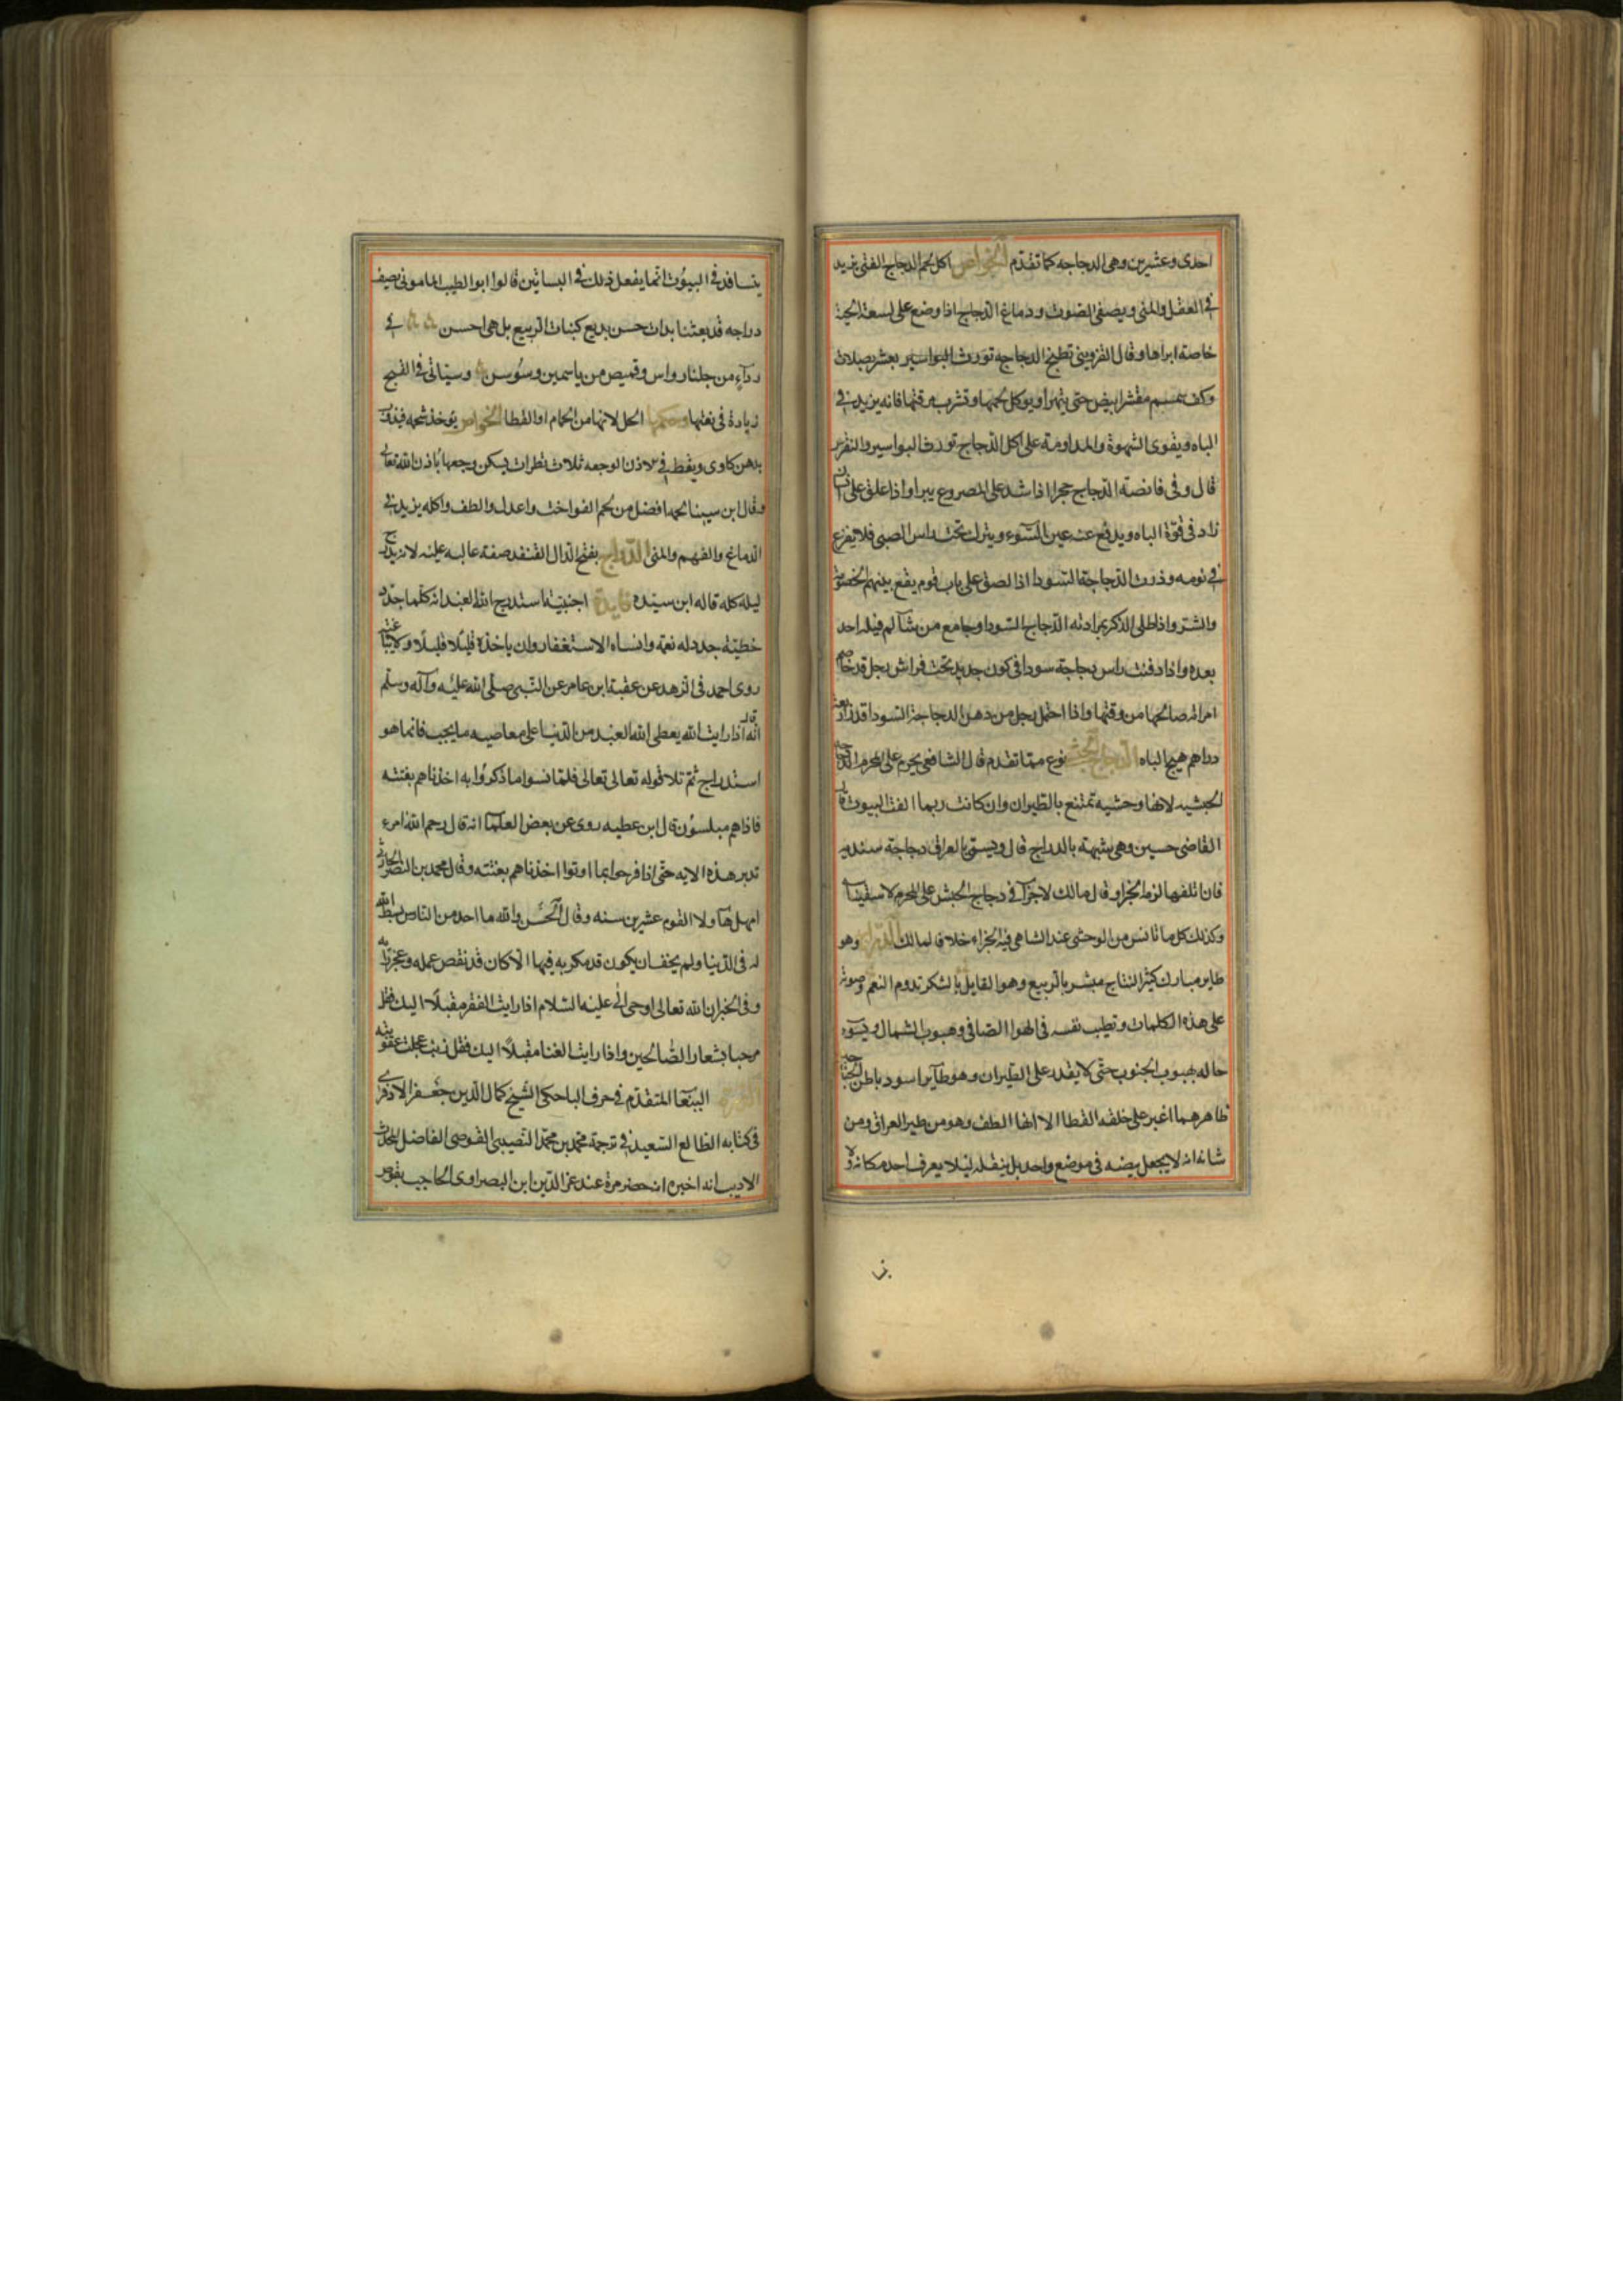 احدى وعشرين وهى الدجاجه كما تقدم الخواص اكل لحم الدجاج الفتى يزيد
فى العقل والمنى ويصفى الصوت ودماغ الدجاج اذا وضع على لسعة الحية
خاصة ابراها وقال القزوينى تطبخ الدجاجه تورث البواسير بعشر بصلات
وكف سمسم مقشر ابيض حتى يتهرا ويوكل لحمها وتشرب مرقتها فانه يزيد فى
الباه ويقوى الشهوة والمداومة على اكل الدجاج تورث البواسير والنقرس
قال وفى قانصة الدجاج حجرا اذا شد على المصروع يبرا واذا علق على انسان
زاد فى قوة الباه ويدفع عنه عين السوء ويترك تحت راس الصبى فلا يفزع
فى نومه وذرت الدجاجة السودا اذا لصق على باب قوم يقع بينهم الخصومة
والشر واذا طلى الذكر بمرارته الدجاج السودا وجامع من شآ لم يقبله احد
بعده واذا دفنت راس دجاجة سودا فى كوز جديد تحت فراش رجل قد خاصم
امراته صالحها من وقتها واذا احتمل رجل من دهن الدجاجة السودا قدر اربعة
دراهم هيج الباه الدجاج الحبشى نوع مما تقدم قال الشافعى يحرم على المحرم الدجاجة
الحبشيه لانها وحشيه تمتنع بالطيران وان كانت ربما الفت البيوت قال
القاضى حسين وهى شبيهة بالدراج قال ويسمى بالعراق دجاجة سنديه
فان اتلفها لزمه الجزا وقال مالك لا جزآ فى دجاج الحبش على المحرم لاستيناسه
وكذلك كل ما تانس من الوحشى عند الشافعى فيه الجزاء خلافا لمالك الدراج وهو
طاير مبارك كثير النتاج مبشر بالربيع وهو القايل بالشكر تدوم النعم وصوته
على هذه الكلمات وتطيب نفسه فى الهوا الصافى وهبوب الشمال ويسوء
حاله بهبوب الجنوب حتى لا يقدر على الطيران وهو طآير اسود باطن الجناحين
ظاهرهما اغبر على خلقة القطا الا انها الطف وهو من طير العراق ومن
شانه انه لا يجعل بيضه فى موضع واحد بل ينقله ليلا يعرف احد مكانه ولا
يتسافد فى البيوت انما يفعل ذلك فى البساتين قالوا ابو الطيب المامونى يصف
دراجه قد بعثنا بذات حسن بديع كنبات الربيع بل هى احسن فى
ردآء من جلنار واس وقميص من ياسمين وسوسن وسياتى فى القبج
زيادة فى نعتها وحكمها الحل لانها من الحمام او القطا الخواص يوخذ شحمه فيذوب
بدهن كاوى ويقطر فى الاذن الوجعه ثلاث قطرات يسكن وجعها باذن الله تعالى
وقال ابن سينا لحمها افضل من لحم الفواخت واعدل والطف واكله يزيد فى
الدماغ والفهم والمنى الدراج بفتح الدال القنفد صفة غالبه عليه لانه يدرج
ليله كله قاله ابن سيده فايدة اجنبية استدرج الله العبد انه كلما جدد
خطيئة جدد له نعمة وانساه الاستغفار وان ياخذه قليلا قليلا ولا يباغته
روى احمد فى الزهد عن عقبة ابن عامر عن النبى صلى الله عليه وآله وسلم
انه قال اذا رايت الله يعطى الله العبد من الدنيا على معاصيه ما يحب فانما هو
استدراج ثم تلا قوله تعالى تعالى فلما نسوا ما ذكروا به اخذناهم بغتته
فاذا هم مبلسون قال ابن عطيه روى عن بعض العلما انه قال رحم الله امرء
تدبر هذه الايه حتى اذا فرحوا بما اوتوا اخذناهم بغتته وقال محمد بن النصر الحارثى
امهل هآولا القوم عشرين سنه وقال الحسن والله ما احد من الناس بسط الله
له فى الدنيا ولم يخف ان يكون قد مكر به فيها الا كان قد نقص عمله وعجز رايه
وفى الخبر ان الله تعالى اوحى الى عليه السلام اذا رايت الفقر مقبلا اليك فقل
مرحبا بشعار الصالحين واذا رايت الغنا مقبلا اليك فقل ذنب عجلت عقوبته
الببغا المتقدم فى حرف البا حكى الشيخ كمال الدين جعفر الادفوى
فى كتابه الطالع السعيد فى ترجمة محمد بن محمد النصيبى القوصى الفاضل المحدث
الاديب انه اخبره انه حضر مرة عند عز الدين ابن البصراوى الحاجب بقوص